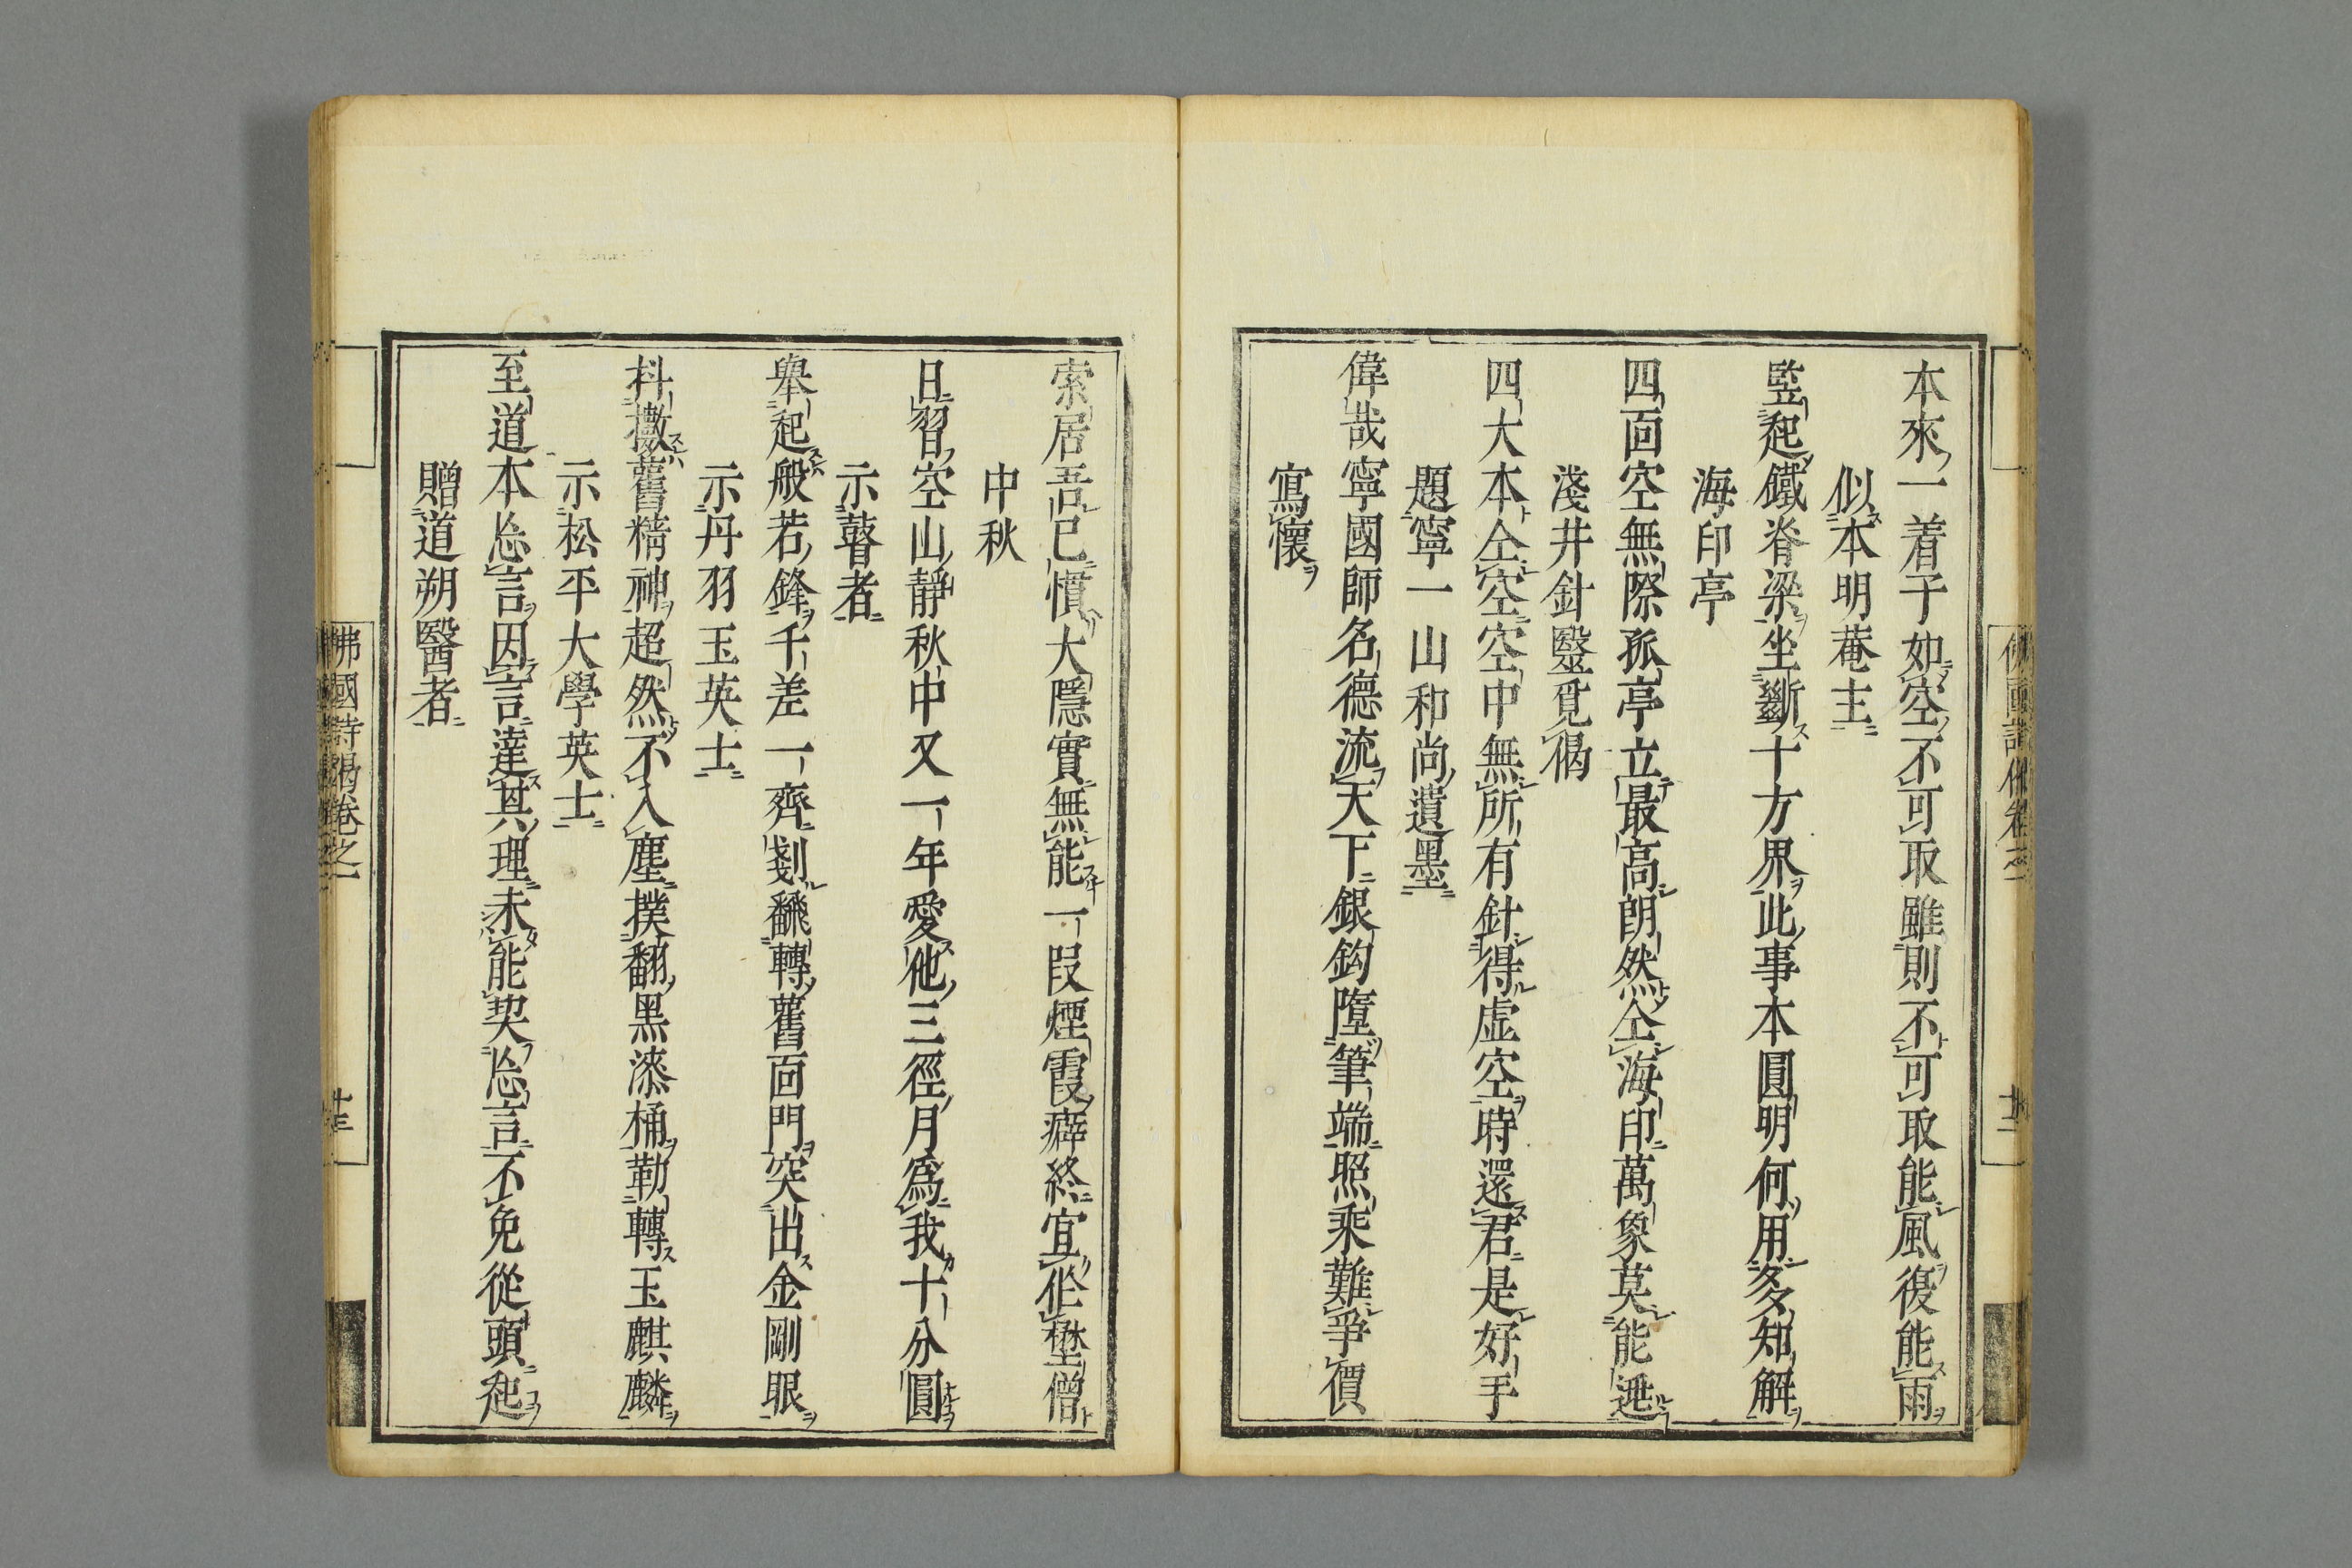 本來一着子如空不可取雖則不可取能風復能雨
似本明菴主
竪起鐵脊梁坐斷十方界此事本圓明何用多知解
海印亭
四面空無際孤亭立最高朗然仝海印萬象莫能逃
淺井針毉覓偈
四大本仝空空中無所有針得虛空時還君是好手
題寧一山和尚遺墨
偉哉寧國師名德流天下銀鈎墮筆端照乘難爭價
寫懷
索居吾已慣大隱實無能一段煙霞癖終宜作墊僧
中秋
日習空山靜秋中又一年愛他三徑月爲我十分圓
示瞽者
舉起般若鋒千差一齊剗飜轉舊面門突出金剛眼
示丹羽玉英士
抖擻舊精神超然不入塵撲翻黑漆桶勒轉玉麒麟
示松平大學英士
至道本忘言因言達其理未能契忘言不免從頭起
贈道朔醫者
佛國詩偈卷之一